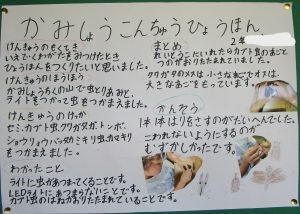 かみしょうこんちゅうひょうほん
2年
けんきゅうのもくてき
いえでくわがたをみつけたとき
ひょうほんをつくりたいと思いました。
けんきゅうのほうほう
かみしょうちくの山で虫とりあみと、
ライトをつかって虫をつかまえました。
けんきゅうのけっか
セミ、カブト虫、クワガタ、トンボ、
ショウリョウバッタ、カミキリ虫、カマキリ
をつかまえました。
わかったこと
ライトに虫があつまってくることです。
LEDライトにあつまらないことです。
カブト虫のはねがおりたたまれていることです。
まとめ
れいとうこにいれたカブト虫のあごと
つのがおりたたまれていました。
クワガタのメスは小さなあごでオスは、
大きなあごをもっています。
かんそう
1本1本はりをさすのがたいへんでした。
こわれないようにするのが
むずかしかったです。